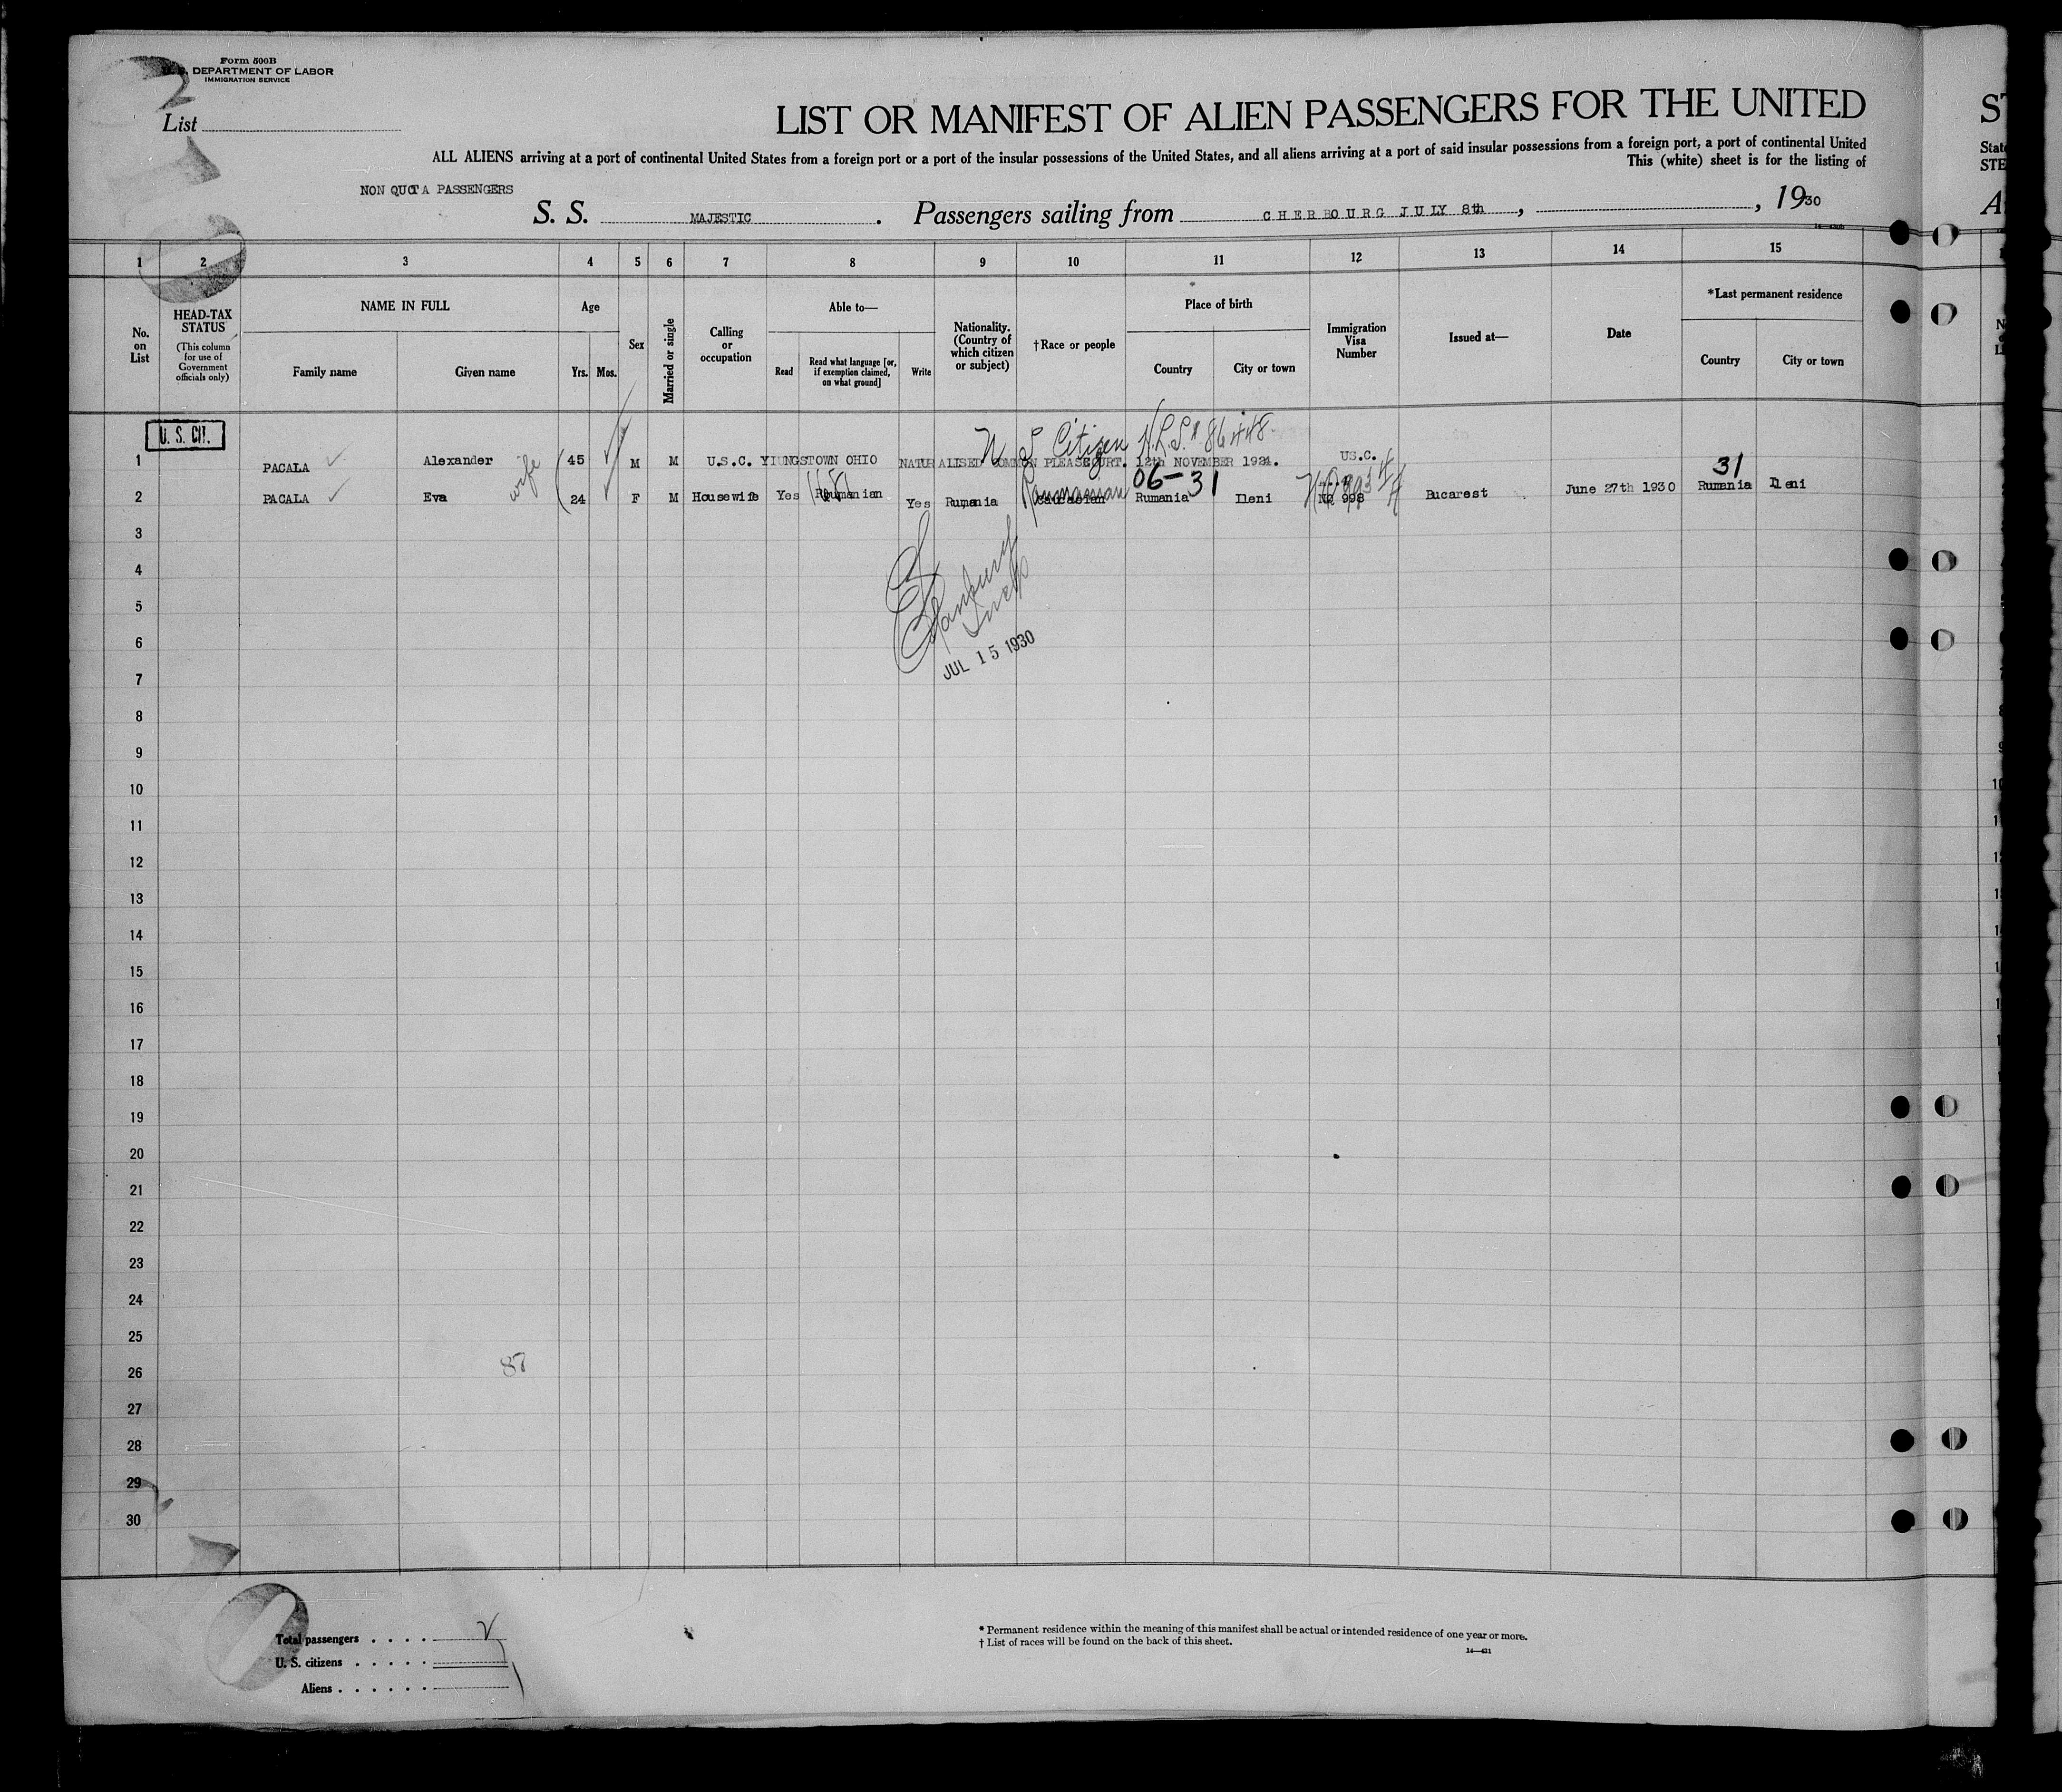 Form 500B
DEPARTMENT OF LABOR
IMMIGRATION SERVICE
2
List
LIST OR MANIFEST OF ALIEN PASSENGERS FOR THE UNITED
ALL ALIENS arriving at a port of continental United States from a foreign port or a port of the insular possessions of the United States, and all aliens arriving at a port of said insular possessions from a foreign port, a port of continental United
This (white) sheet is for the listing of
NON QUOTA PASSENGERS
S. S. MAJESTIC . Passengers sailing from CHERBOURG JULY 8th , , 1930
1 2 3 4 5 6 7 8 9 10 11 12 13 14 15
No. on List
HEAD-TAX STATUS (This column for use of Government officials only)
NAME IN FULL
Family name Given name
Age
Yrs. Mos.
Sex
Married or single
Calling or occupation
Able to—
Read
Read what language [or, if exemption claimed, on what ground]
Write
Nationality. (Country of which citizen or subject)
†Race or people
Place of birth
Country City or town
Immigration Visa Number
Issued at—
Date
*Last permanent residence
Country City or town
U. S. CIT.
Citizen 86448
1 PACALA Alexander 45 M M U.S.C. YIUNGSTOWN OHIO NATURALISED COMMON PLEASCOURT. 12th NOVEMBER 1921. US.C.
wife
06-31
31
2 PACALA Eva 24 F M Housewife Yes Roumanian Yes Rumania Roumanian Rumania Ileni No 998 Bucarest June 27th 1930 Rumania Ileni
3
4
5
6
JUL 15 1930
7
8
9
10
11
12
13
14
15
16
17
18
19
20
21
22
23
24
25
87
26
27
28
29
30
Total passengers . . . .
U. S. citizens . . . . .
Aliens . . . . . .
* Permanent residence within the meaning of this manifest shall be actual or intended residence of one year or more.
† List of races will be found on the back of this sheet.
14—421